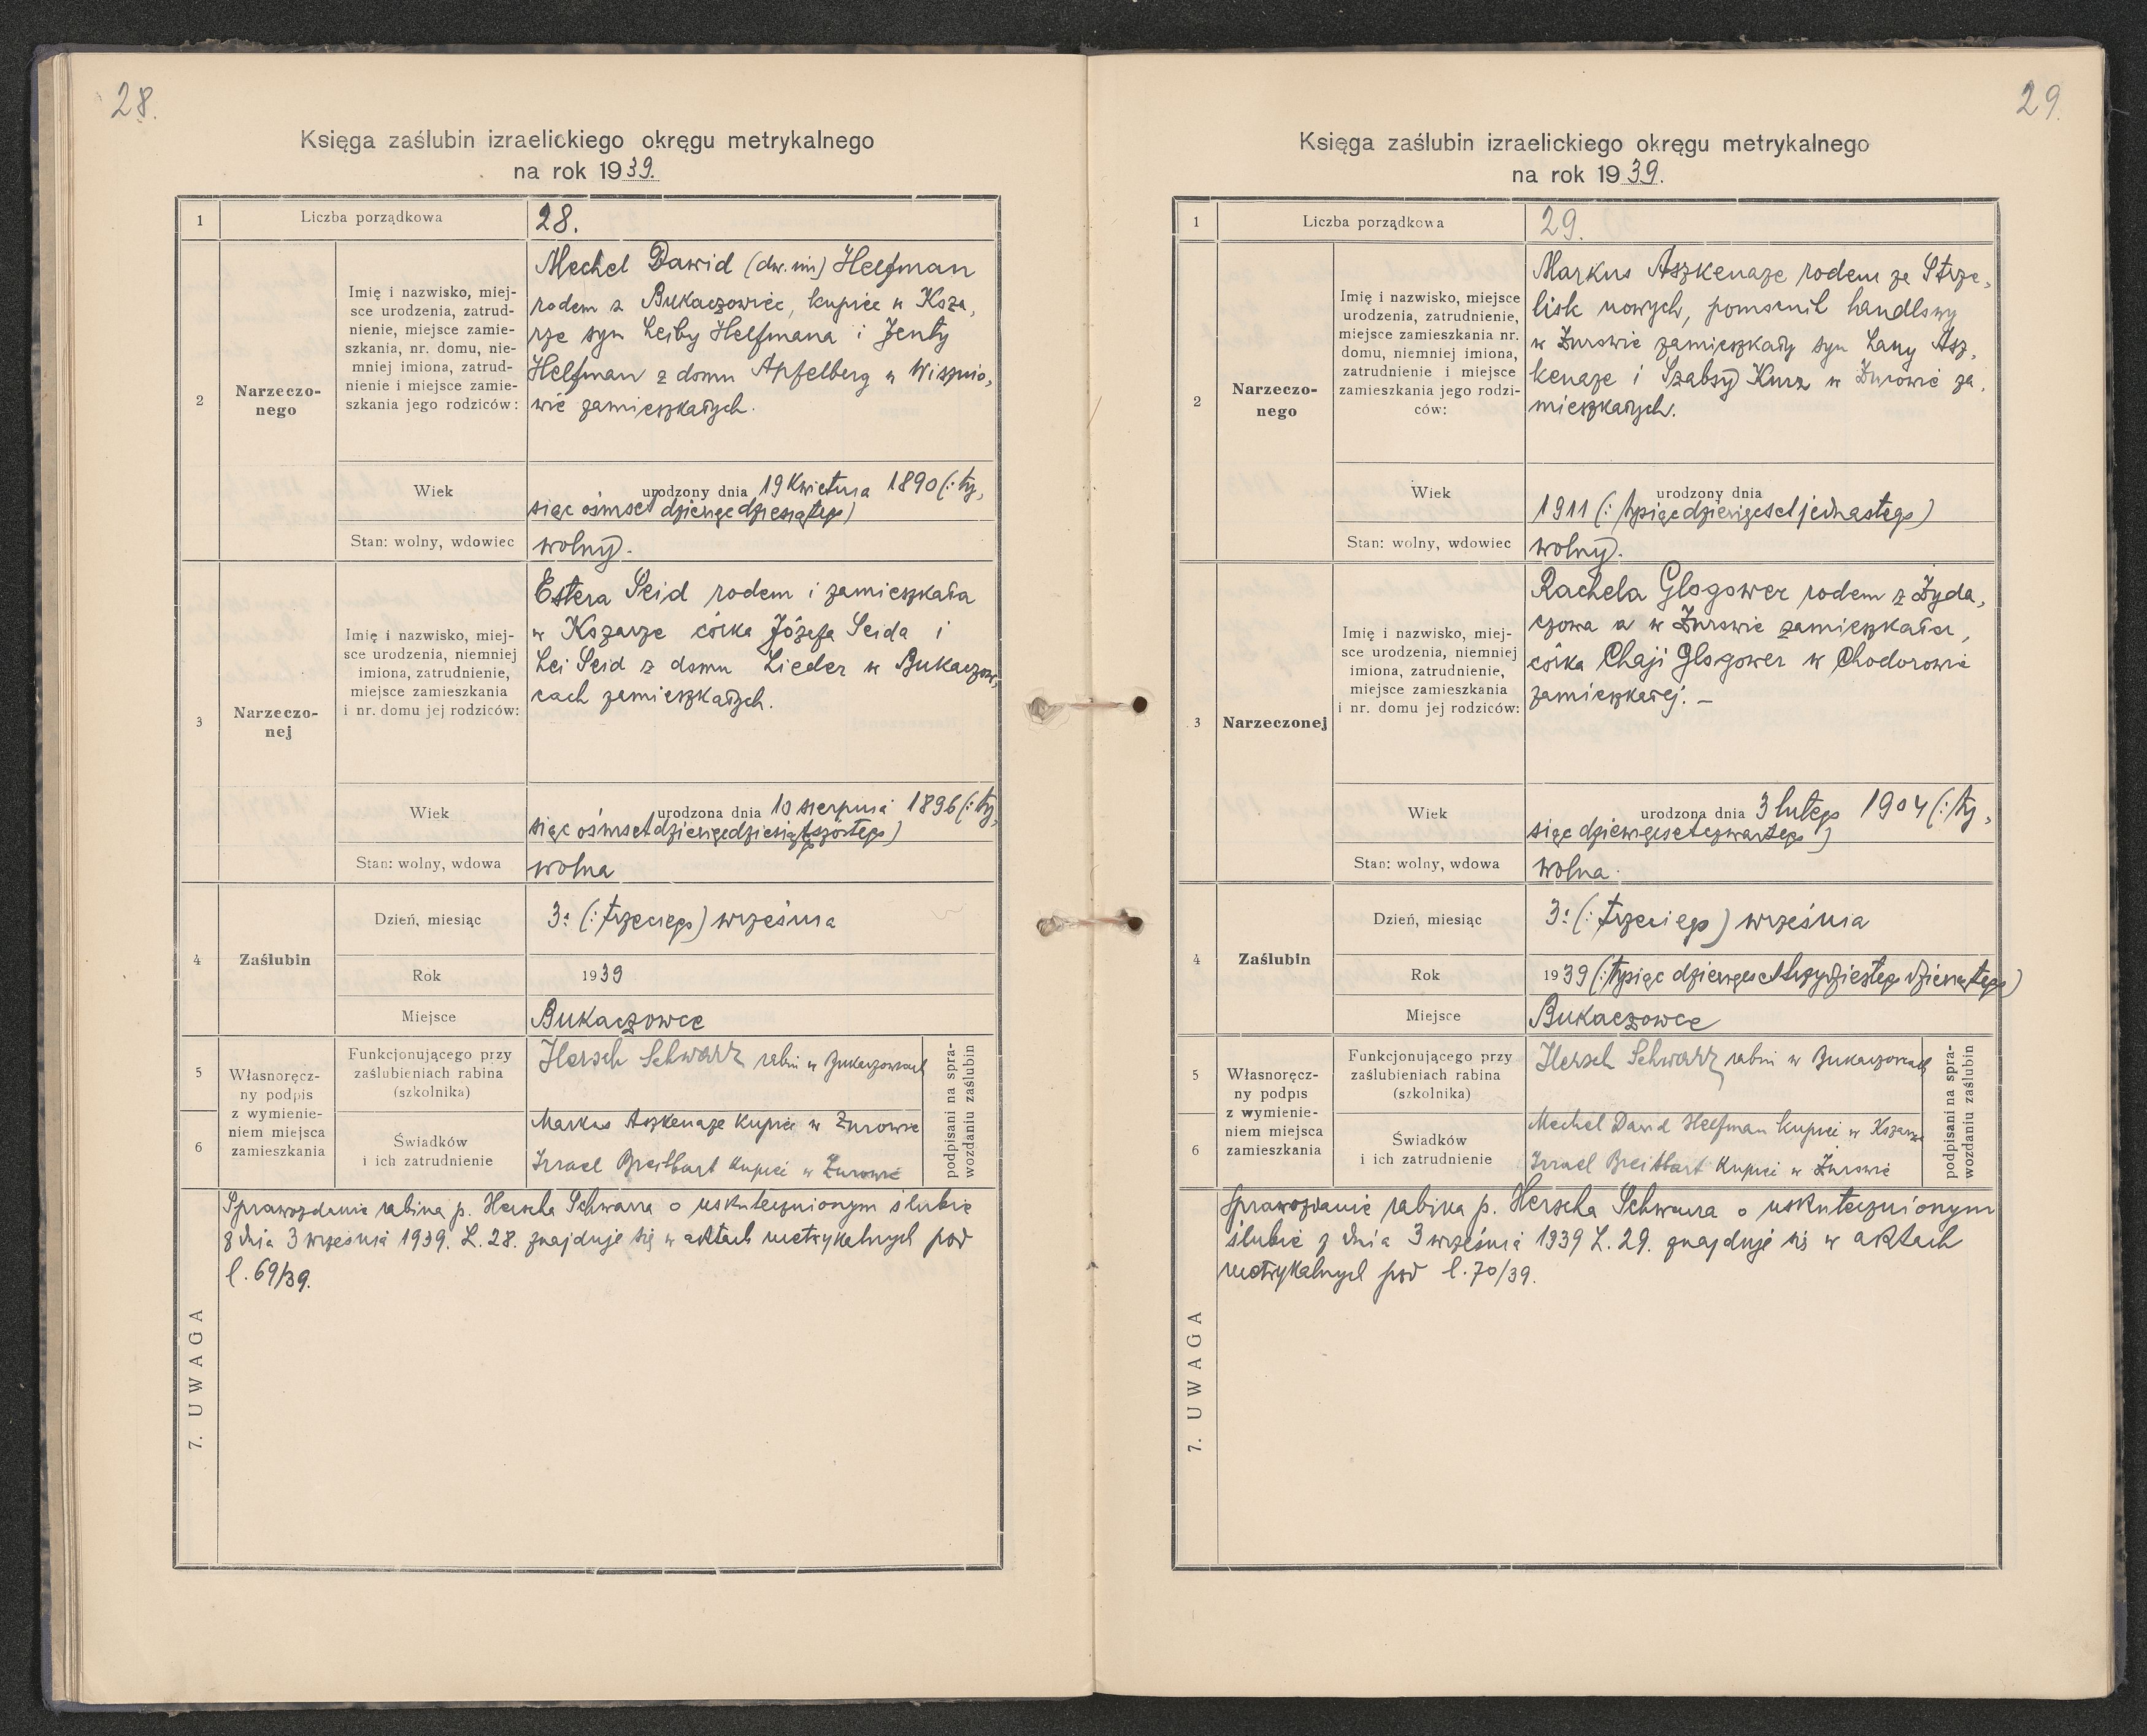 28.
Księga zaślubin izraelickiego okręgu metrykalnego
na rok 1939.
1
Liczba porządkowa
28.
2
Narzeczo-
nego
Imię i nazwisko, miej-
sce urodzenia, zatrud-
nienie, miejsce zamie-
szkania, nr. domu, nie-
mniej imiona, zatrud-
nienie i miejsce zamie-
szkania jego rodziców:
Mechel Dawid (dw. im) Helfman
rodem z Bukaczowiec, kupiec w Koza,
rze syn Leiby Helfmana i Jenty
Helfman z domu Apfelberg w Wisznio,
wie zamieszkałych.
Wiek
urodzony dnia 19 Kwietnia 1890 (: ty,
siąc ośmset dziewięćdziesiątego)
Stan: wolny, wdowiec
wolny.
3
Narzeczo-
nej
Imię i nazwisko, miej-
sce urodzenia, niemniej
imiona, zatrudnienie,
miejsce zamieszkania
i nr. domu jej rodziców:
Estera Seid rodem i zamieszkała
w Kozarze córka Józefa Seida i
Lei Seid z domu Lieder w Bukaczow,
cach zamieszkałych.
Wiek
urodzona dnia 10 sierpnia 1896 (: ty,
siąc ośmset dziewięćdziesiątszóstego)
Stan: wolny, wdowa
wolna
4
Zaślubin
Dzień, miesiąc
3: (: trzeciego) września
Rok
1939
Miejsce
Bukaczowce
5
6
Własnoręcz-
ny podpis
z wymienie-
niem miejsca
zamieszkania
Funkcjonującego przy
zaślubieniach rabina
(szkolnika)
Hersch Schwarz rabin w Bukaczowcach
Świadków
i ich zatrudnienie
Markus Aszkenaze Kupiec w Żurowie
Izrael Breitbart Kupiec w Żurowie
podpisani na spra-
wozdaniu zaślubin
7. UWAGA
Sprawozdanie rabina p. Herscha Schwarza o uskutecznionym ślubie
z dnia 3 września 1939. L. 28. znajduje się w aktach metrykalnych pod
l. 69/39.
29.
Księga zaślubin izraelickiego okręgu metrykalnego
na rok 1939.
1
Liczba porządkowa
29.
2
Narzeczo-
nego
Imię i nazwisko, miejsce
urodzenia, zatrudnienie,
miejsce zamieszkania nr.
domu, niemniej imiona,
zatrudnienie i miejsce
zamieszkania jego rodzi-
ców:
Markus Aszkenaze rodem ze Strze,
lisk nowych, pomocnik handlowy
w Żurowie zamieszkały syn Lany Asz,
kenaze i Szabsy Kurz w Żurowie za,
mieszkałych.
Wiek
urodzony dnia
1911 (: tysiącdziewięćset jednastego)
Stan: wolny, wdowiec
wolny.
3
Narzeczonej
Imię i nazwisko, miej-
sce urodzenia, niemniej
imiona, zatrudnienie,
miejsce zamieszkania
i nr. domu jej rodziców:
Rachela Glogower rodem z Żyda,
czowa a w Żurowie zamieszkała,
córka Chaji Glogower w Chodorowie
zamieszkałej. —
Wiek
urodzona dnia 3 lutego 1904 (: ty,
siąc dziewięćsetczwartego)
Stan: wolny, wdowa
wolna.
4
Zaślubin
Dzień, miesiąc
3: (: trzeciego) września
Rok
1939 (: tysiąc dziewięćset trzydziestego dziewiątego)
Miejsce
Bukaczowce
5
6
Własnoręcz-
ny podpis
z wymienie-
niem miejsca
zamieszkania
Funkcjonującego przy
zaślubieniach rabina
(szkolnika)
Hersch Schwarz rabin w Bukaczowcach
Świadków
i ich zatrudnienie
Mechel Dawid Helfman kupiec w Kozarze
Izrael Breitbart Kupiec w Żurowie
podpisani na spra-
wozdaniu zaślubin
7. UWAGA
Sprawozdanie rabina p. Herscha Schwarza o uskutecznionym
ślubie z dnia 3 września 1939 L. 29. znajduje się w aktach
metrykalnych pod l. 70/39.